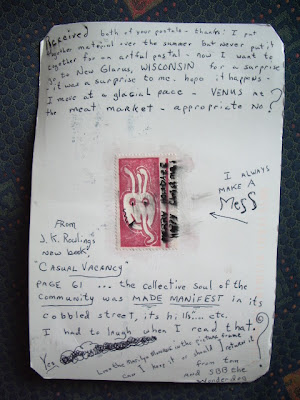 Received both of your postals - thanks! I put
together material over the summer but never put it
together for an artful postal - now I want to
go to New Glarus, WISCONSIN for a surprise
- it was a surprise to me. hope it happens -
I move at a glacial pace - VENUS at
the meat market - appropriate no?
I ALWAYS
MAKE A
MESS
From
J.K. Rowling's
New book,
"CASUAL VACANCY"
PAGE 61 ... the collective soul of the
community was MADE MANIFEST in its
cobbled street, its hills... etc.
I had to laugh when I read that.
Yes
Love the Marilyn Monroe in the picture frame
can I keep it or should I return it
from
and SBB the
Wonder dog